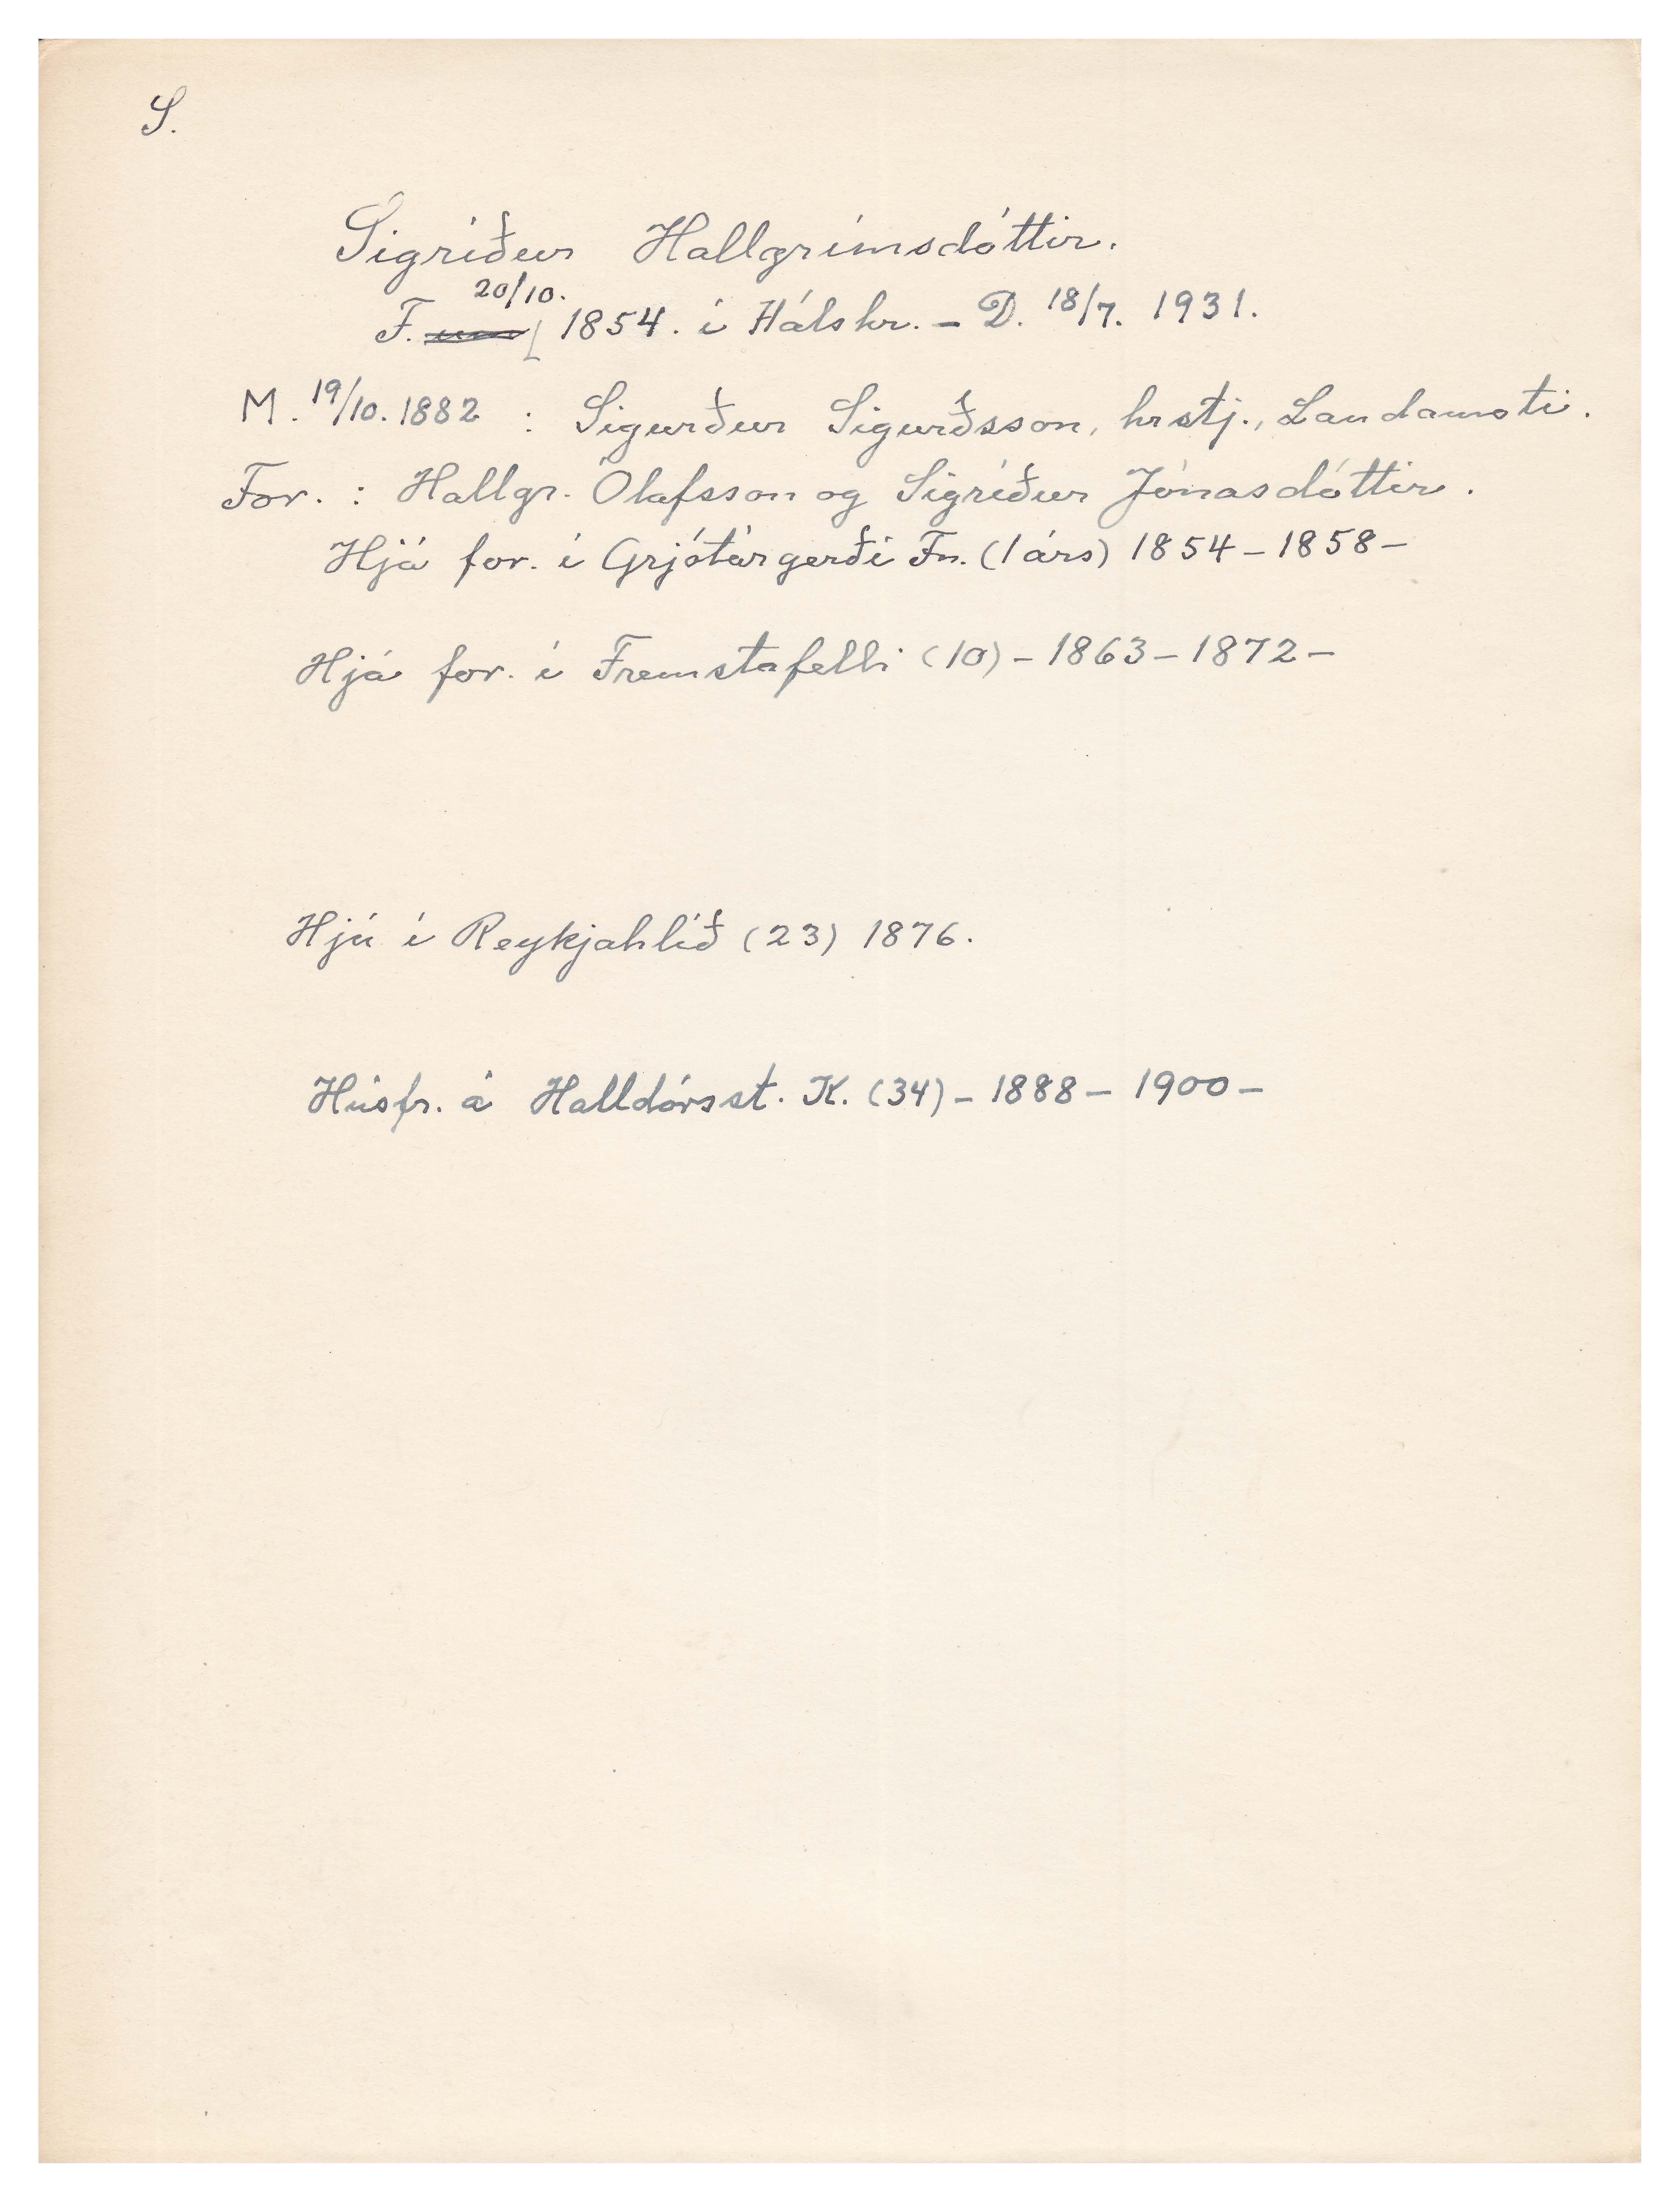 S.
Sigríður Hallgrímsdóttir.
20/10.
F. 1854. í Hálshr. – D. 18/7. 1931.
M. 19/10. 1882 : Sigurður Sigurðsson, hrstj., Landamoti.
For. : Hallgr. Ólafsson og Sigríður Jónasdóttir.
Hjá for. í Grjótárgerði Fn. (1 árs) 1854 – 1858 –
Hjá for. í Fremstafelli (10) – 1863 – 1872 –
Hjú í Reykjahlíð (23) 1876.
Húsfr. á Halldórsst. K. (34) – 1888 – 1900 –